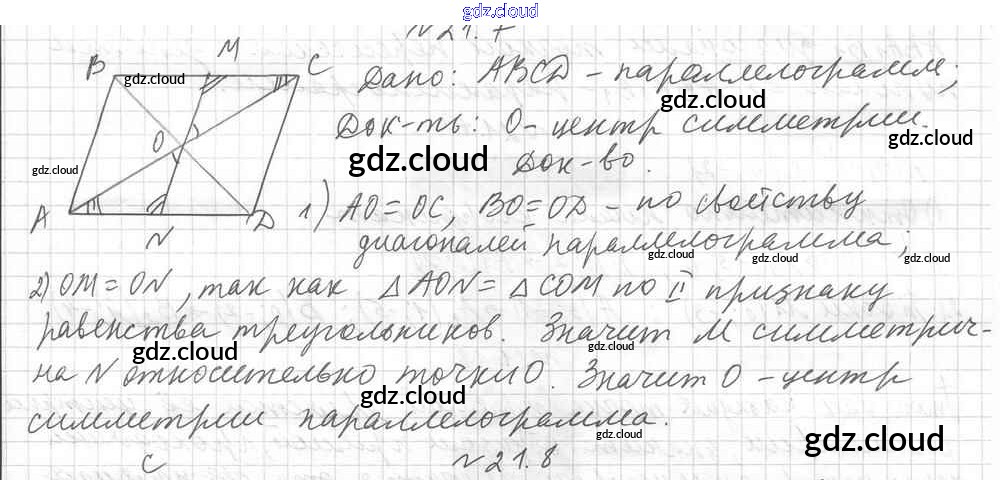 gdz.cloud
№21.7
B M C
Дано: ABCD – параллелограмм;
gdz.cloud
gdz.cloud
Док-ть: O – центр симметрии.
O
gdz.cloud
Док-во.
gdz.cloud
A N D
1) AO = OC, BO = OD – по свойству
gdz.cloud
диагоналей параллелограмма;
gdz.cloud
gdz.cloud
gdz.cloud
2) OM = ON, так как △AON = △COM по II признаку
равенства треугольников. Значит M симметрич-
gdz.cloud
gdz.cloud
на N относительно точки O. Значит O – центр
gdz.cloud
симметрии параллелограмма.
gdz.cloud
gdz.cloud
C №21.8